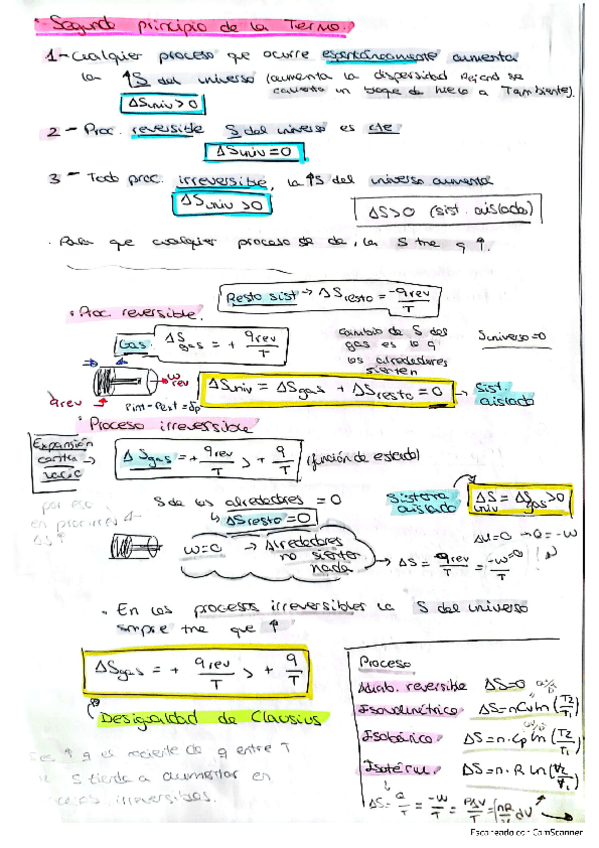 Segundo principio de la Termo.
1-Cualquier proceso que ocurre espontáneamente aumenta
la ↑S del universo (aumenta la dispersidad
un bloque de hielo a T ambiente).
ΔSuniv > 0
2 - Proc. reversible S del universo es cte
ΔSuniv = 0
3 - Todo proc. irreversible, la ↑S del universo aumenta
ΔSuniv > 0
ΔS>0 (sist. aislado)
· Para que cualquier proceso se de, la S tne q ↑.
Resto sist → ΔSresto = -qrev/T
· Proc. reversible.
Gas. ΔSgas = + qrev/T
cambio de S del
gas es lo q
los alrededores
sienten
Suniverso=0
wrev
qrev
Pint-Pext=dp
ΔSuniv = ΔSgas + ΔSresto = 0 → Sist. aislado
· Proceso irreversible
Expansión
contra →
vacío
ΔSgas = + qrev/T > + q/T (función de estado)
S de los alrededores = 0
↳ ΔSresto = 0
Sistema aislado
ΔSuniv = ΔSgas > 0
por eso
en proc irrev
ΔS ↑
w=0 → Alrededores
no sienten
nada
ΔU=0 → Q=-W
→ ΔS = qrev/T = -w=0/T
· En los procesos irreversibles la S del universo
smpre tne que ↑
ΔSgas = + qrev/T > + q/T
Desigualdad de Clausius
Proceso
Adiab. reversible ΔS=0
Isovolumétrico ΔS=nCv ln(T2/T1)
Isobárico ΔS=n·Cp ln(T2/T1)
Isotérm. ΔS=n·R ln(V2/V1)
ΔS= Q/T = -W/T = PΔV/T = ∫nR/V dV
q entre T
S tiende a aumentar en
irreversibles.
Escaneado con CamScanner